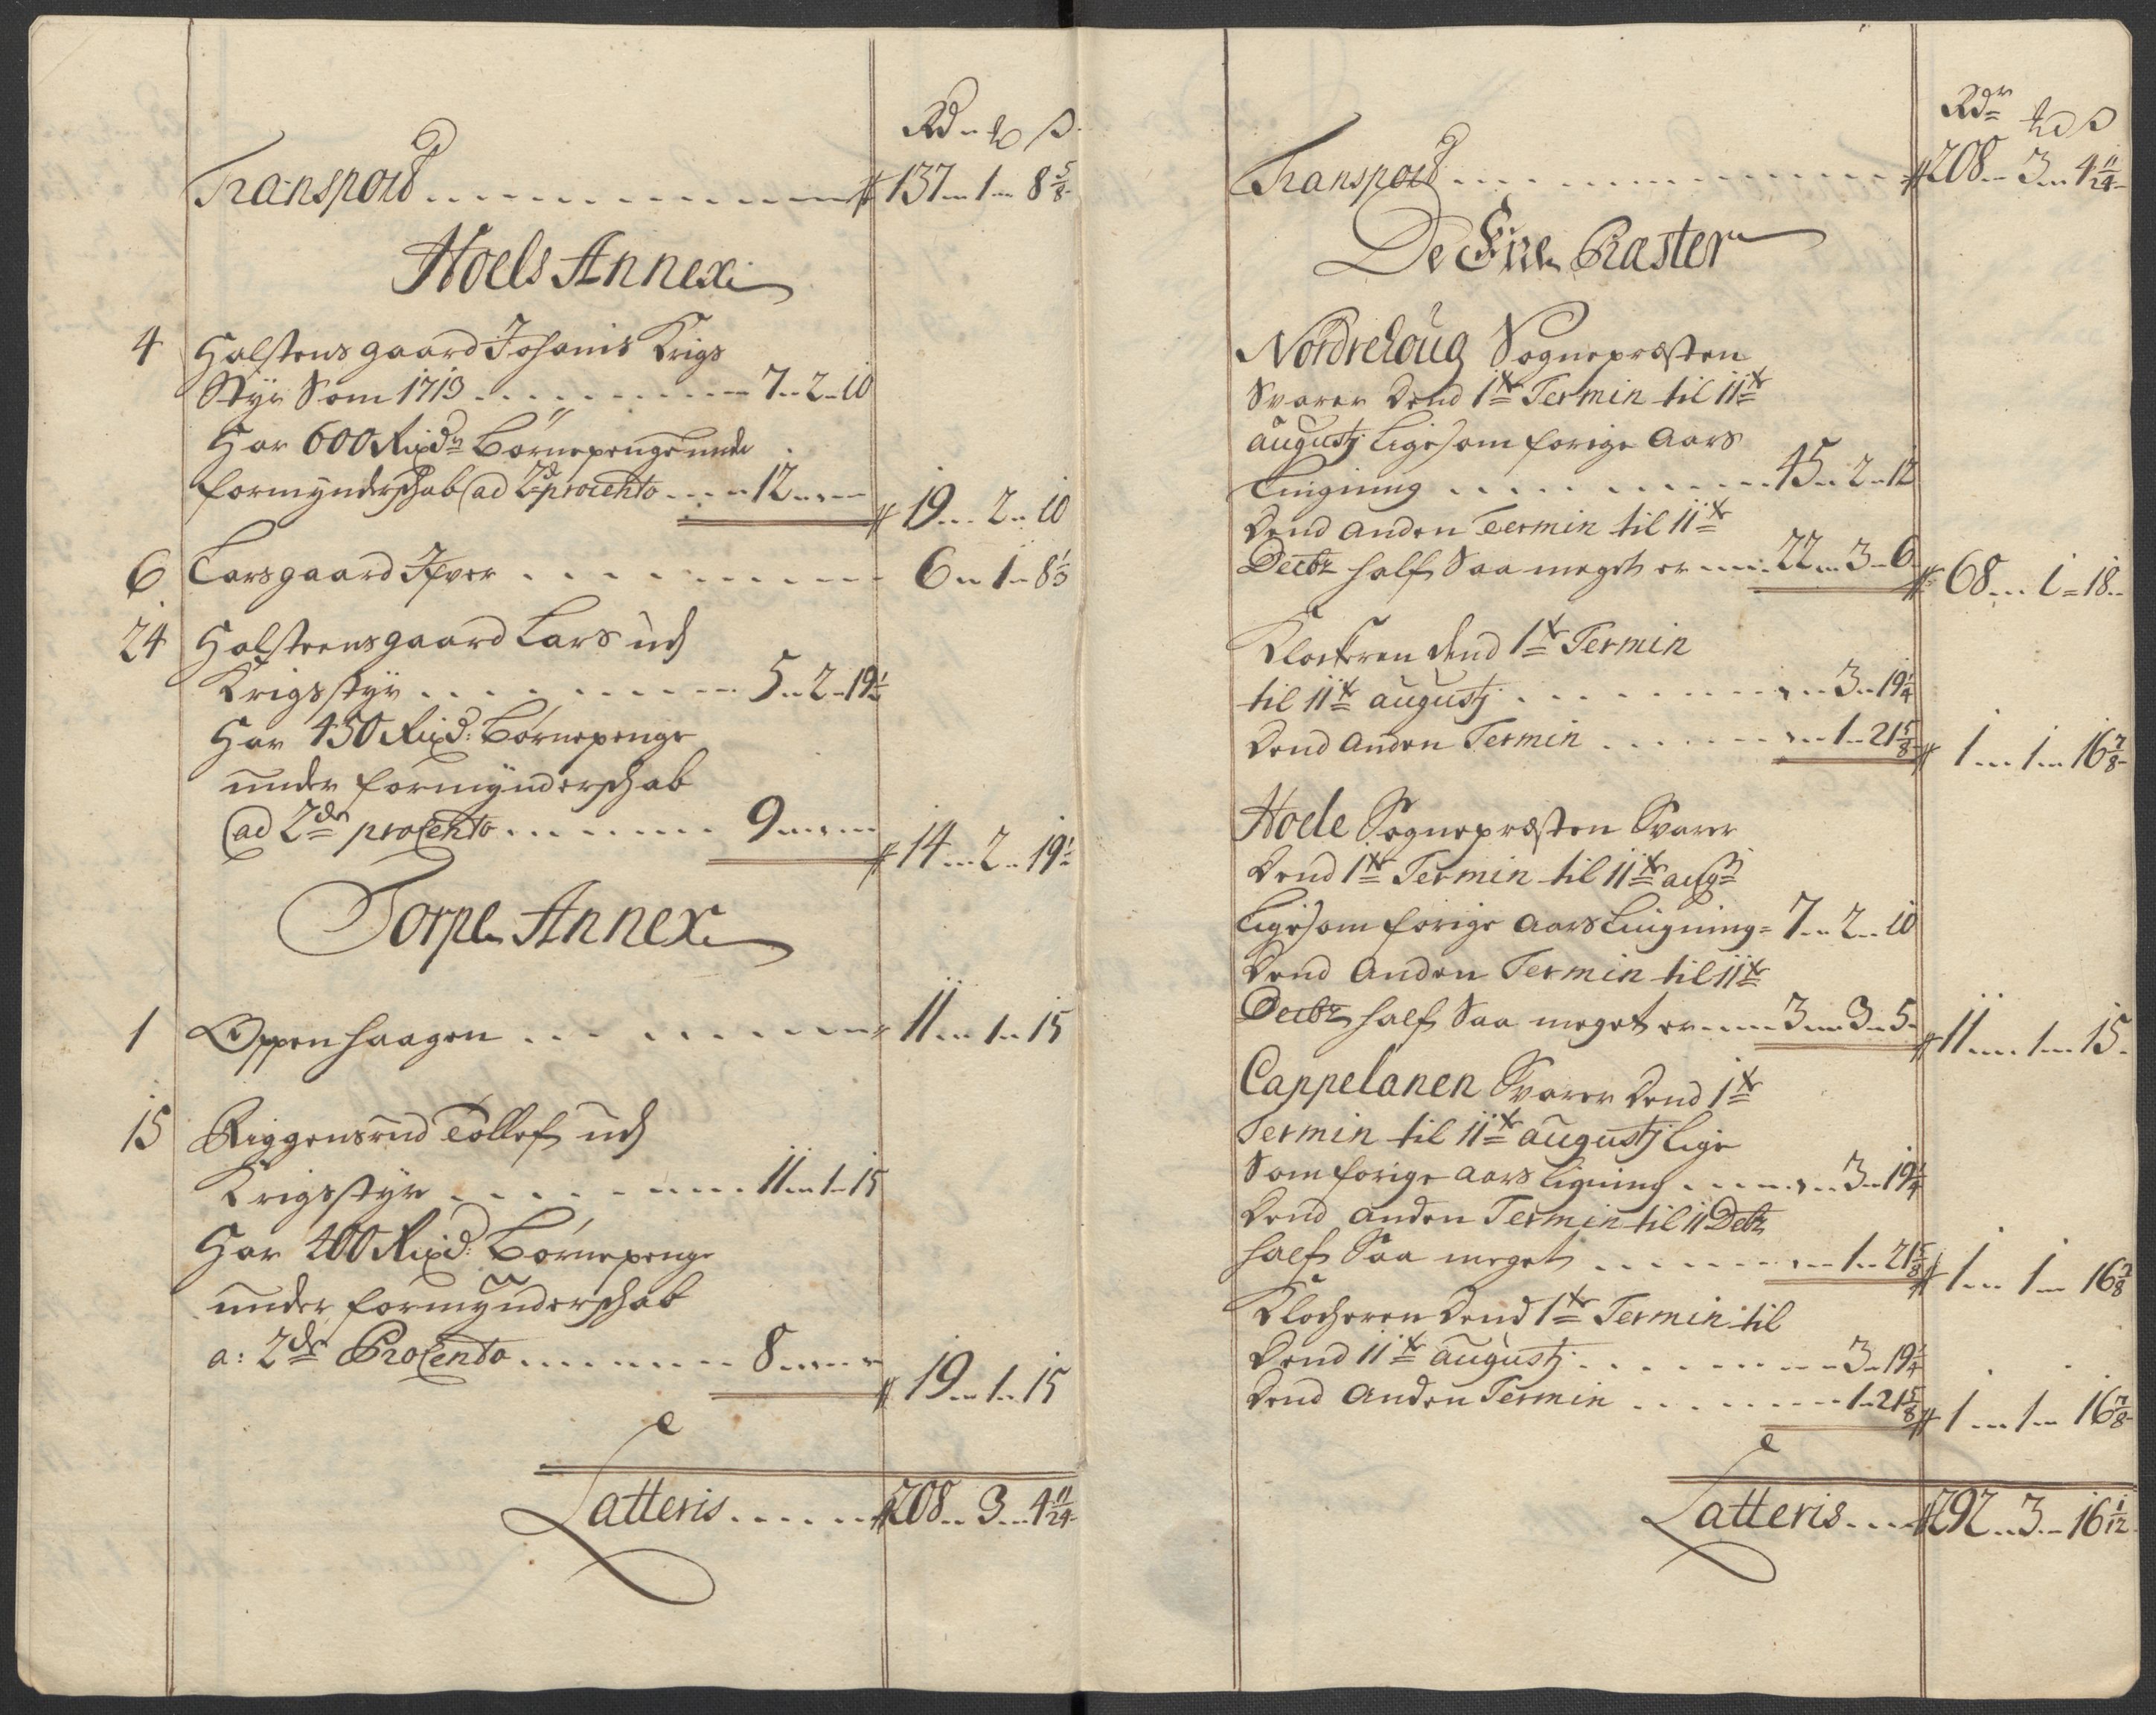 Rd - ℔ ß
Transport . . . . . . . . . . # 137 - 1 - 8 5/8
Hoels Annex
4 Halstensgaard Johanis Krigs
Styr Som 1713 . . . . . . . . . 7 - 2 - 10
Har 600 Rixdr Børnepenge unde
formynderschab (ad 2d procento . . . . 12 - - -
# 19 - 2 - 10
6 Larsgaard Ifver . . . . . . . . . . 6 - 1 - 8 1/3
24 Halsteensgaard Lars ud
Krigsstyr . . . . . . . . . . 5 - 2 - 19 1/2
Har 450 Rixd: Børnepenge
under formynderschab
(ad 2dr procento . . . . . . . 9 - - -
# 14 - 2 - 19 1/2
Torpe Annex
1 Oppenhaagen . . . . . . . . . 11 - 1 - 15
15 Riggensrud Tollef ud
Krigsstyr . . . . . . . . . 11 - 1 - 15
Har 400 Rixd: Børnepenge
under formynderschab
a: 2dr Procento . . . . . . . . 8 - - -
# 19 - 1 - 15
Latteris . . . . . . # 208 - 3 - 4 11/24
Rdr ℔ ß
Transport . . . . . . . . . . # 208 - 3 - 4 11/24
De Præster
Nordrehoug Sognepræsten
Svarer Dend 1te Termin til 11te
augustj Ligesom forige Aars
Ligning . . . . . . . . . 45 - 2 - 12
Dend anden Termin til 11te
Decbr half Saa meget er - - - 22 - 3 - 6
# 68 - 1 - 18
Klockeren dend 1te Termin
til 11te augustj . . . . . . . . . 3 - 19 1/4
Dend Anden Termin . . . . . . . 1 - 21 5/8
# 1 - 1 - 16 7/8
Hoele Sognepræsten Svarer
Dend 1te Termin til 11te augsti
Ligesom forige Aars Ligning = 7 - 2 - 10
Dend Anden Termin til 11te
Decbr half Saa meget er - - - 3 - 3 - 5
# 11 - 1 - 15
Cappelanen Svarer Dend 1te
Termin til 11te augustj Lige
Som forige Aars ligning . . . . . 3 - 19 1/4
Dend anden Termin til 11 Decbr
half Saa meget . . . . . . . 1 - 21 5/8
# 1 - 1 - 16 7/8
Klocheren Dend 1te Termin til
Dend 11te augustj . . . . . . . . 3 - 19 1/4
Dend Anden Termin . . . . . . . 1 - 21 5/8
# 1 - 1 - 16 7/8
Latteris . . . # 292 - 3 - 16 1/12